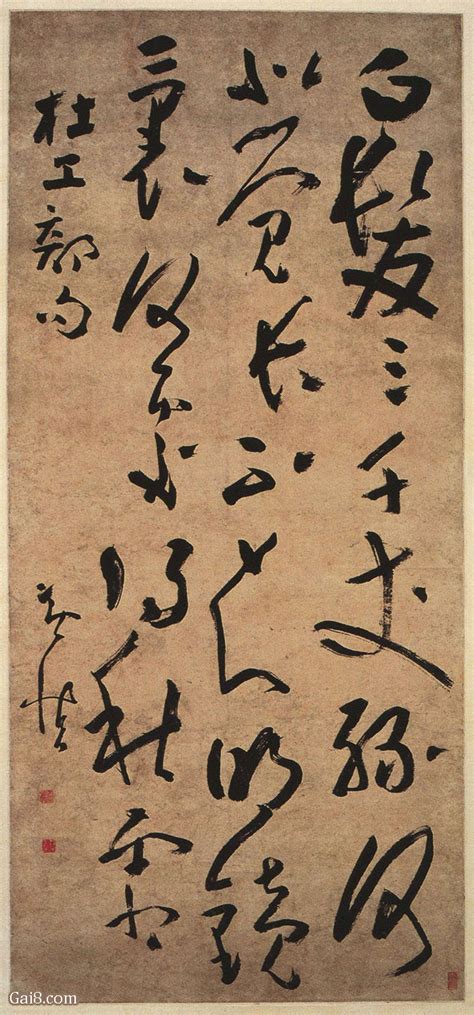 白髮三千丈緣何
似長不知明鏡
裏何處得秋霜
杜工部句
黃慎
Gai8.com